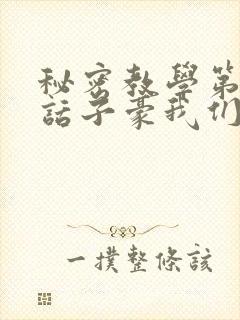 秘密教學第
話子豪我们
一撲整條該